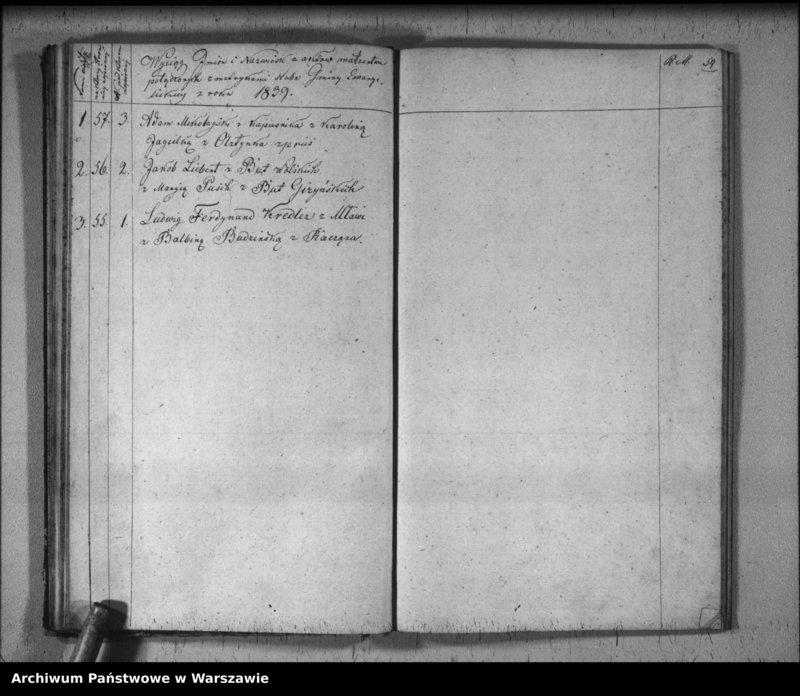 Wyciąg Imion i Nazwisk z aktów małżeństw
połączonych z metrykami ślubu Gminy Ewange-
lickiey z roku 1839.
1 57. 3. Adam Mikołayski z Kapusnika z Karoliną
Jagielką z
2. 56. 2. Jakob Liebert z Bud Wolskich
z Maryią Pusch z Bud Giżyńskich
3. 55. 1. Ludwig Ferdynand Kredler z Mławi
z Balbiną Budzińską z
R. M. 59
Archiwum Państwowe w Warszawie